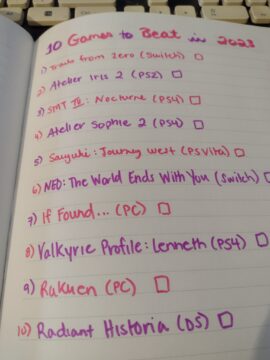 10 Games to Beat in 2023
1) Trails from Zero (Switch)
2) Atelier Iris 2 (PS2)
3) SMT III: Nocturne (PS4)
4) Atelier Sophie 2 (PS4)
5) Saiyuki: Journey West (PSVita)
6) NEO: The World Ends With You (Switch)
7) If Found... (PC)
8) Valkyrie Profile: Lenneth (PS4)
9) Rakuen (PC)
10) Radiant Historia (DS)